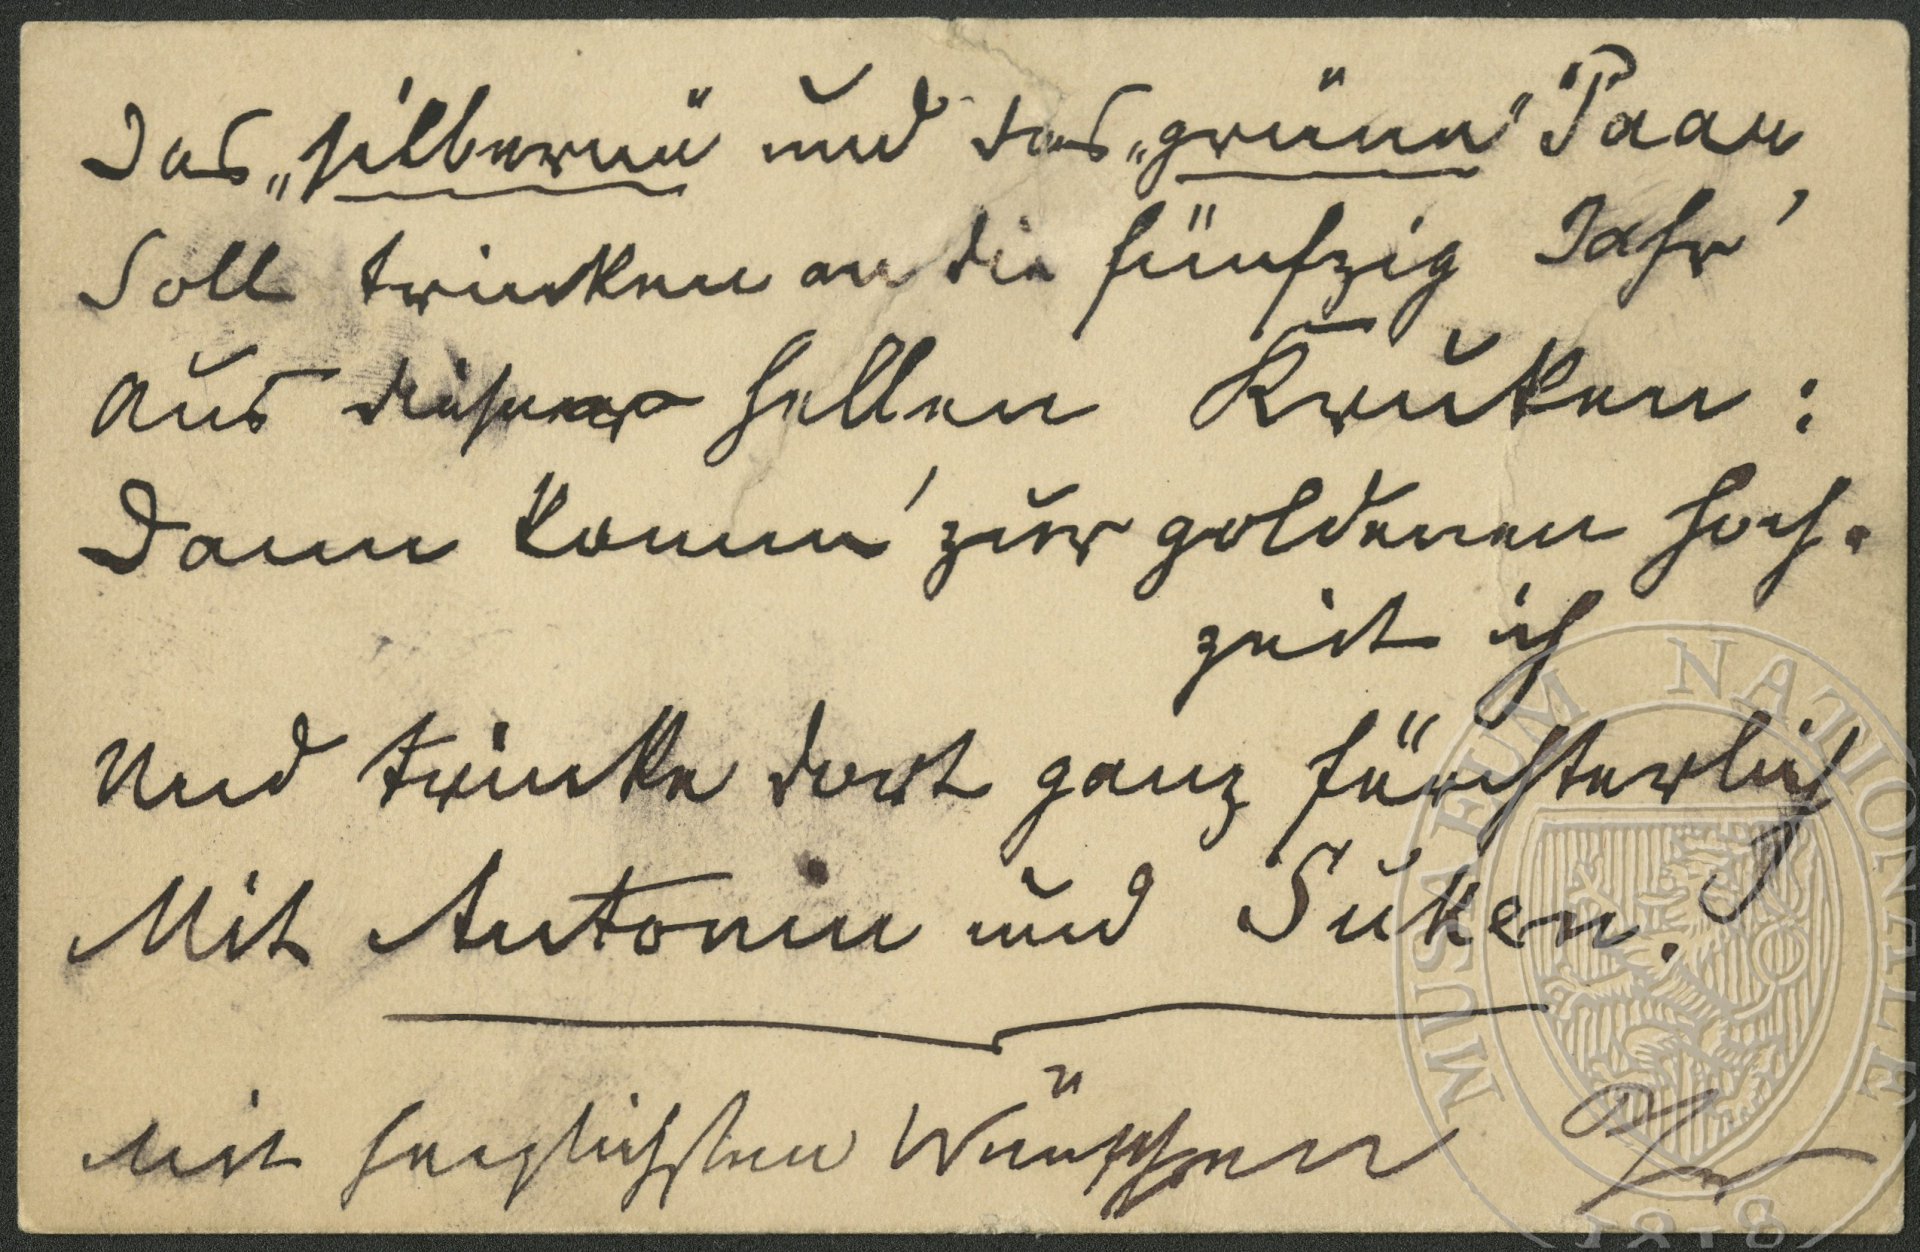 Das „silberne“ und das „grüne“ Paar
Soll trinken an die fünfzig Jahr'
Aus dieser hellen Kruken:
Dann komm' zur goldenen Hoch-
zeit ich
Und trinke dort ganz fürchterlich
Mit Antonin und Suken.
Mit herzlichsten Wünschen
MUSAEUM NATIONALE
1818